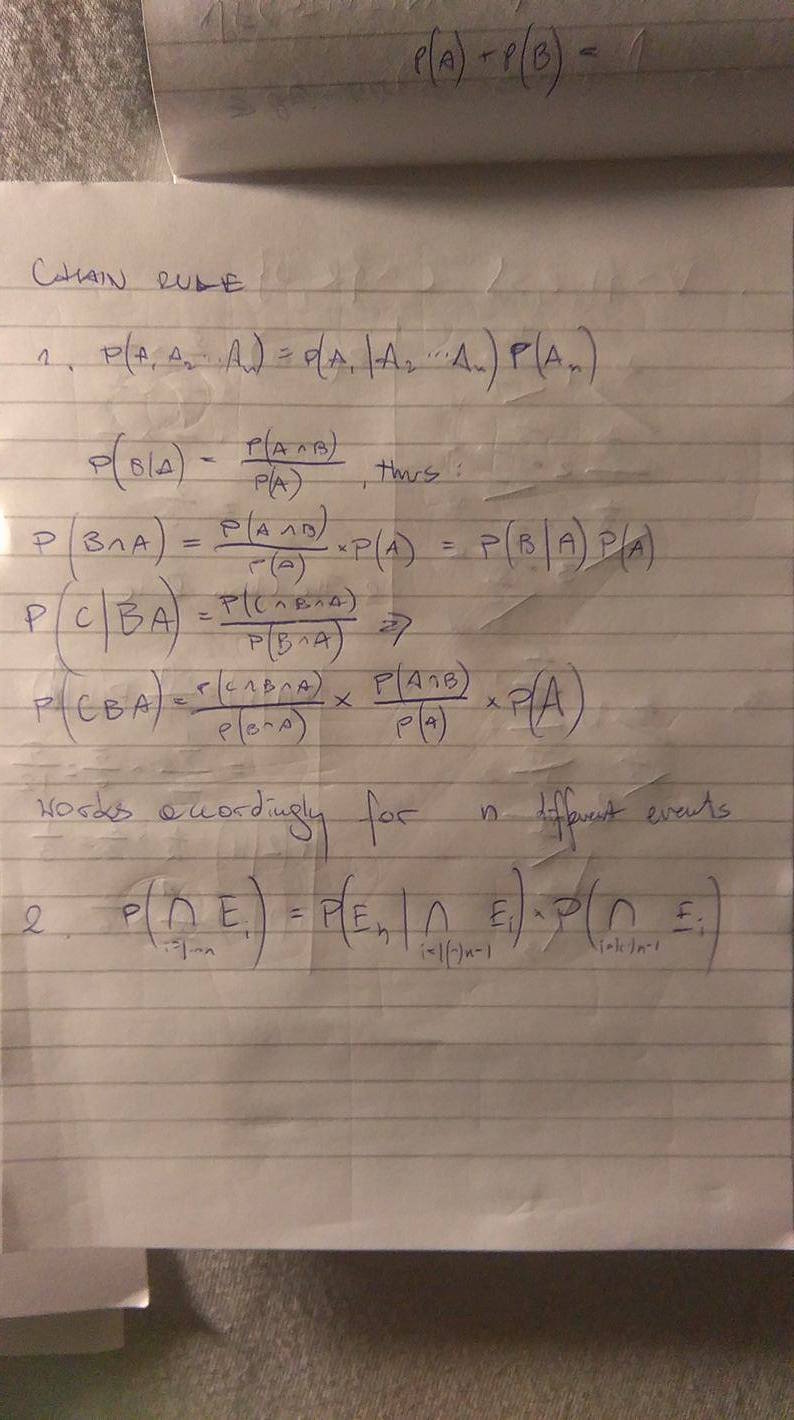 P(A) + P(B) = 1
CHAIN RULE
1. P(A₁ A₂ ⋯ Aₙ) = P(A₁ | A₂ ⋯ Aₙ) P(Aₙ)
P(B|A) = P(A∩B) / P(A) , thus :
P(B∩A) = P(A∩B) / P(A) × P(A) = P(B|A) P(A)
P(C|BA) = P(C∩B∩A) / P(B∩A) ⇒
P(CBA) = P(C∩B∩A) / P(B∩A) × P(A∩B) / P(A) × P(A)
works accordingly for n different events
2. P(∩ i=1⋯n Eᵢ) = P(Eₙ | ∩ i=1(⋯)n-1 Eᵢ) × P(∩ i=1(⋯)n-1 Eᵢ)